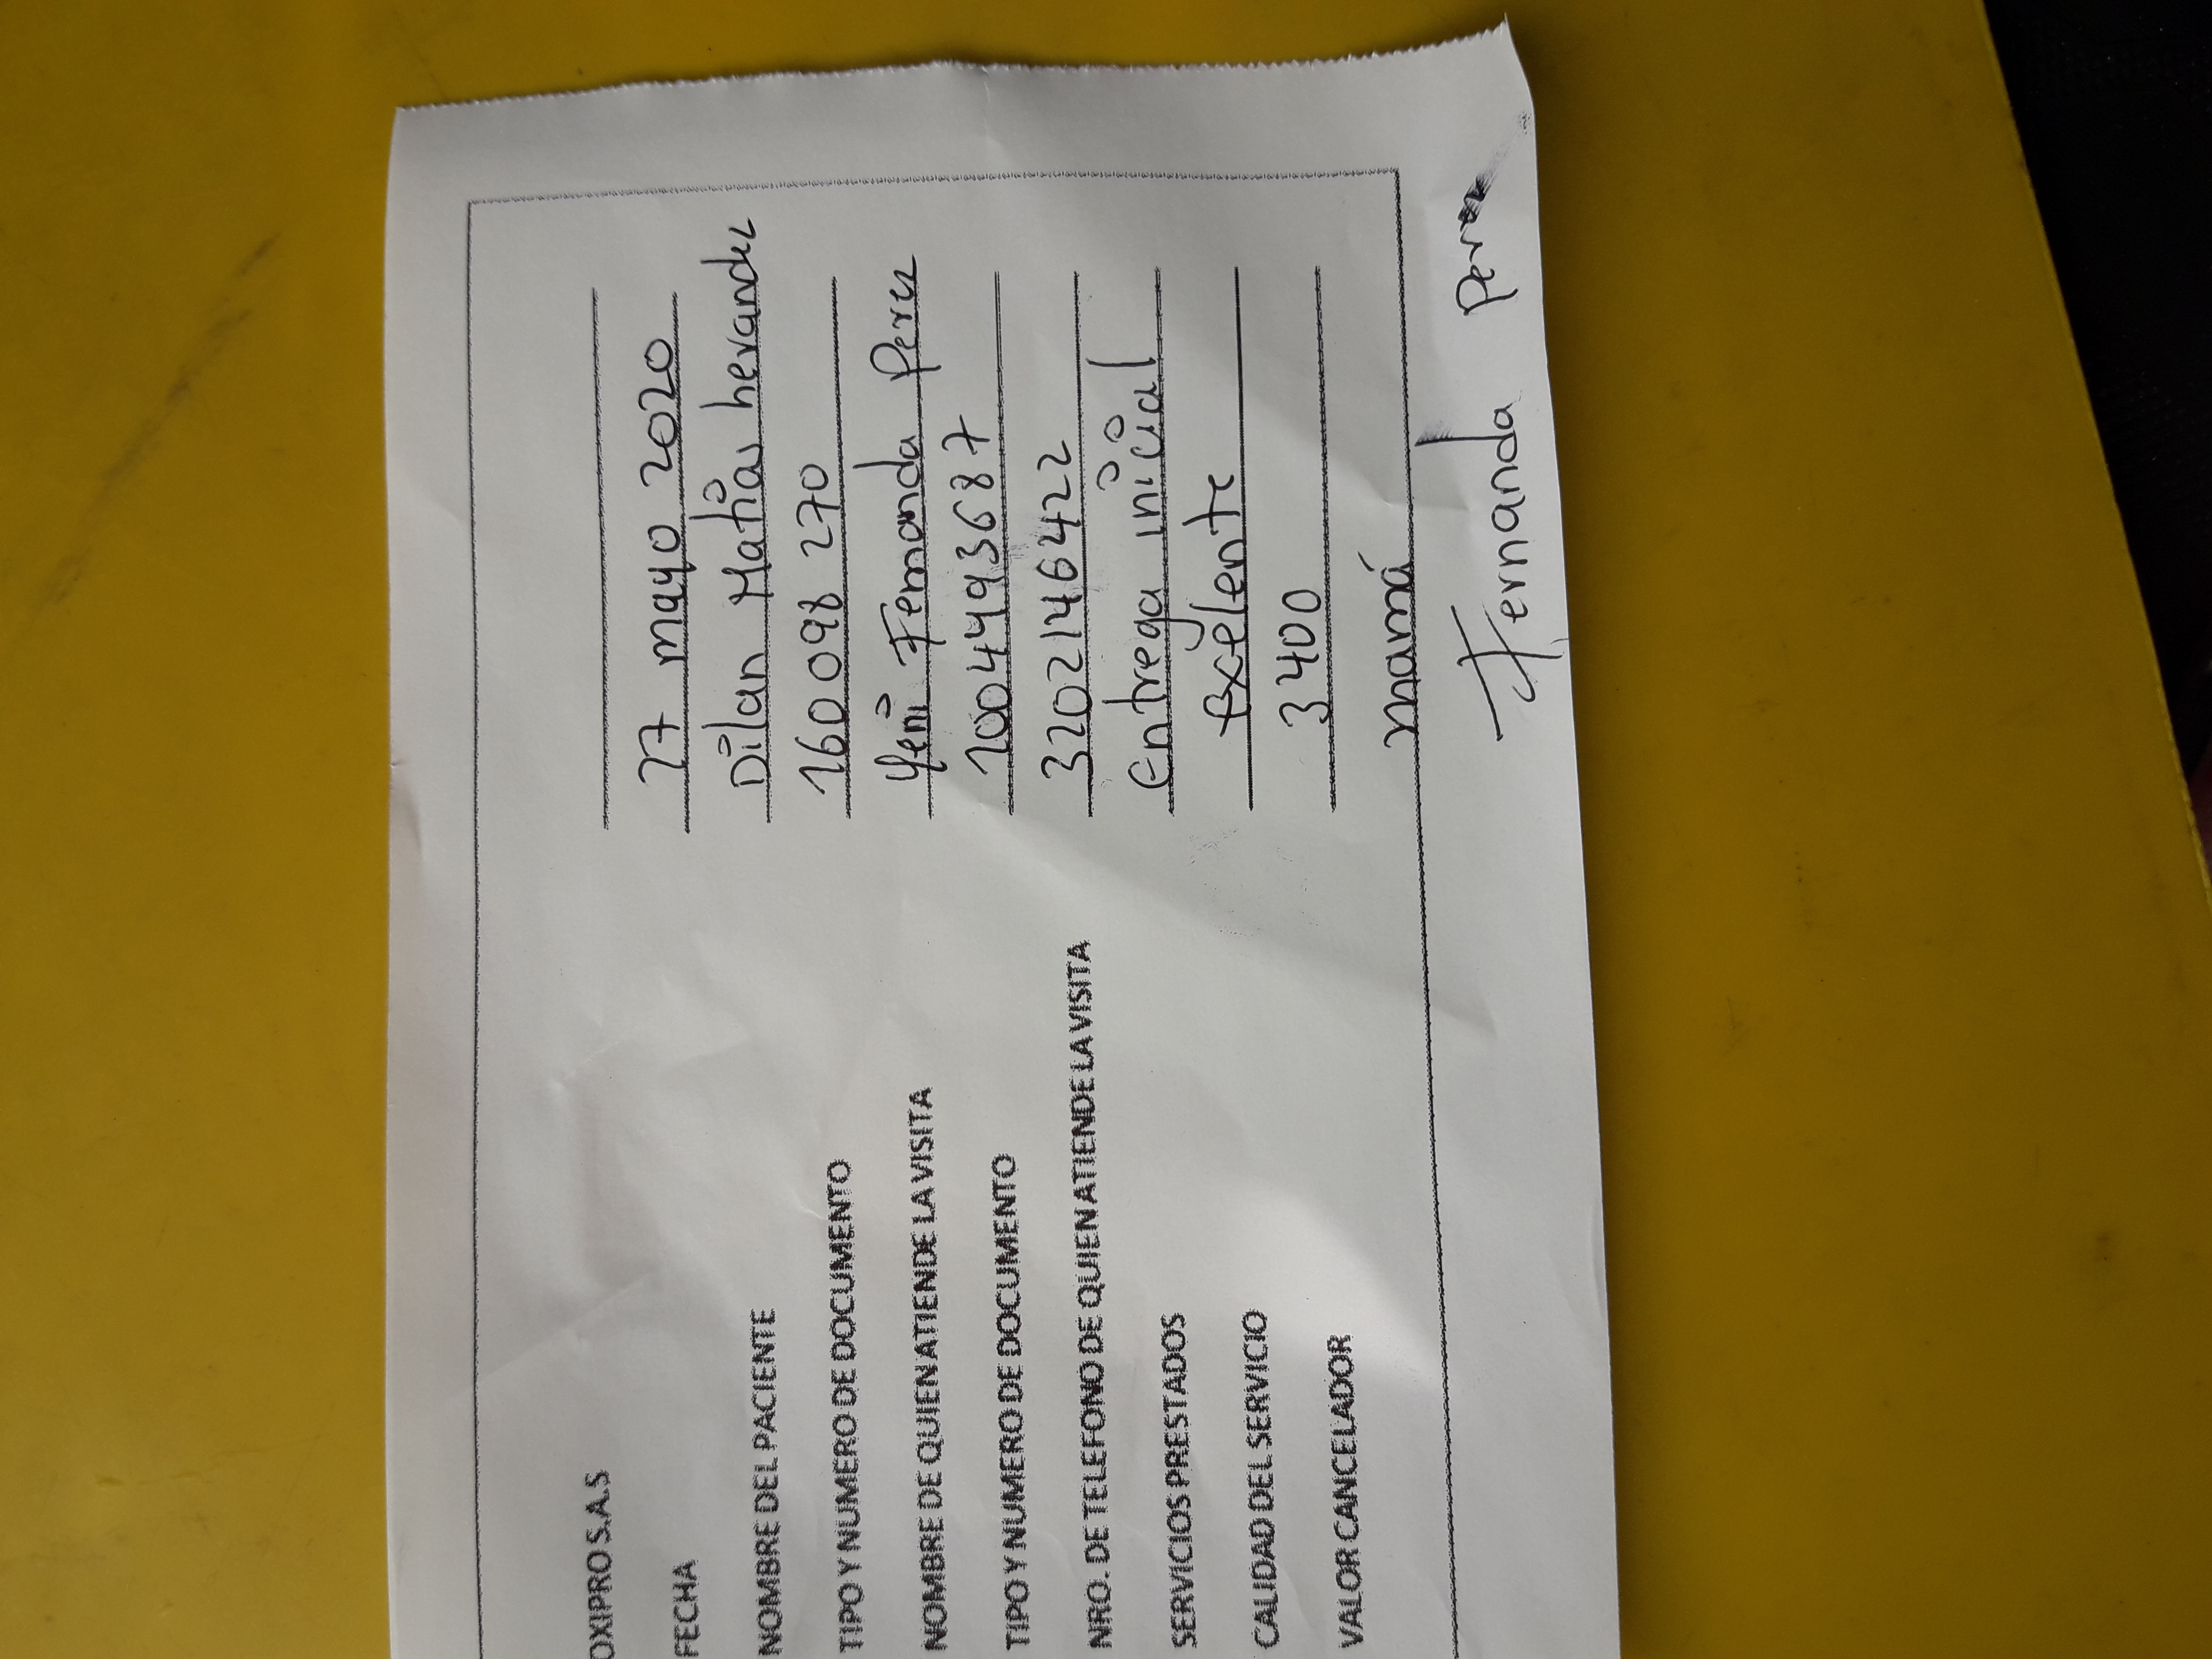 OXIPRO S.A.S
FECHA 27 mayo 2020
NOMBRE DEL PACIENTE Dilan Matias herandez
TIPO Y NUMERO DE DOCUMENTO 160098270
NOMBRE DE QUIEN ATIENDE LA VISITA Yeni Fernanda Perez
TIPO Y NUMERO DE DOCUMENTO 1004493687
NRO. DE TELEFONO DE QUIEN ATIENDE LA VISITA 3202146422
SERVICIOS PRESTADOS Entrega inicial
CALIDAD DEL SERVICIO Exelente
VALOR CANCELADOR 3400
mamá
Fernanda